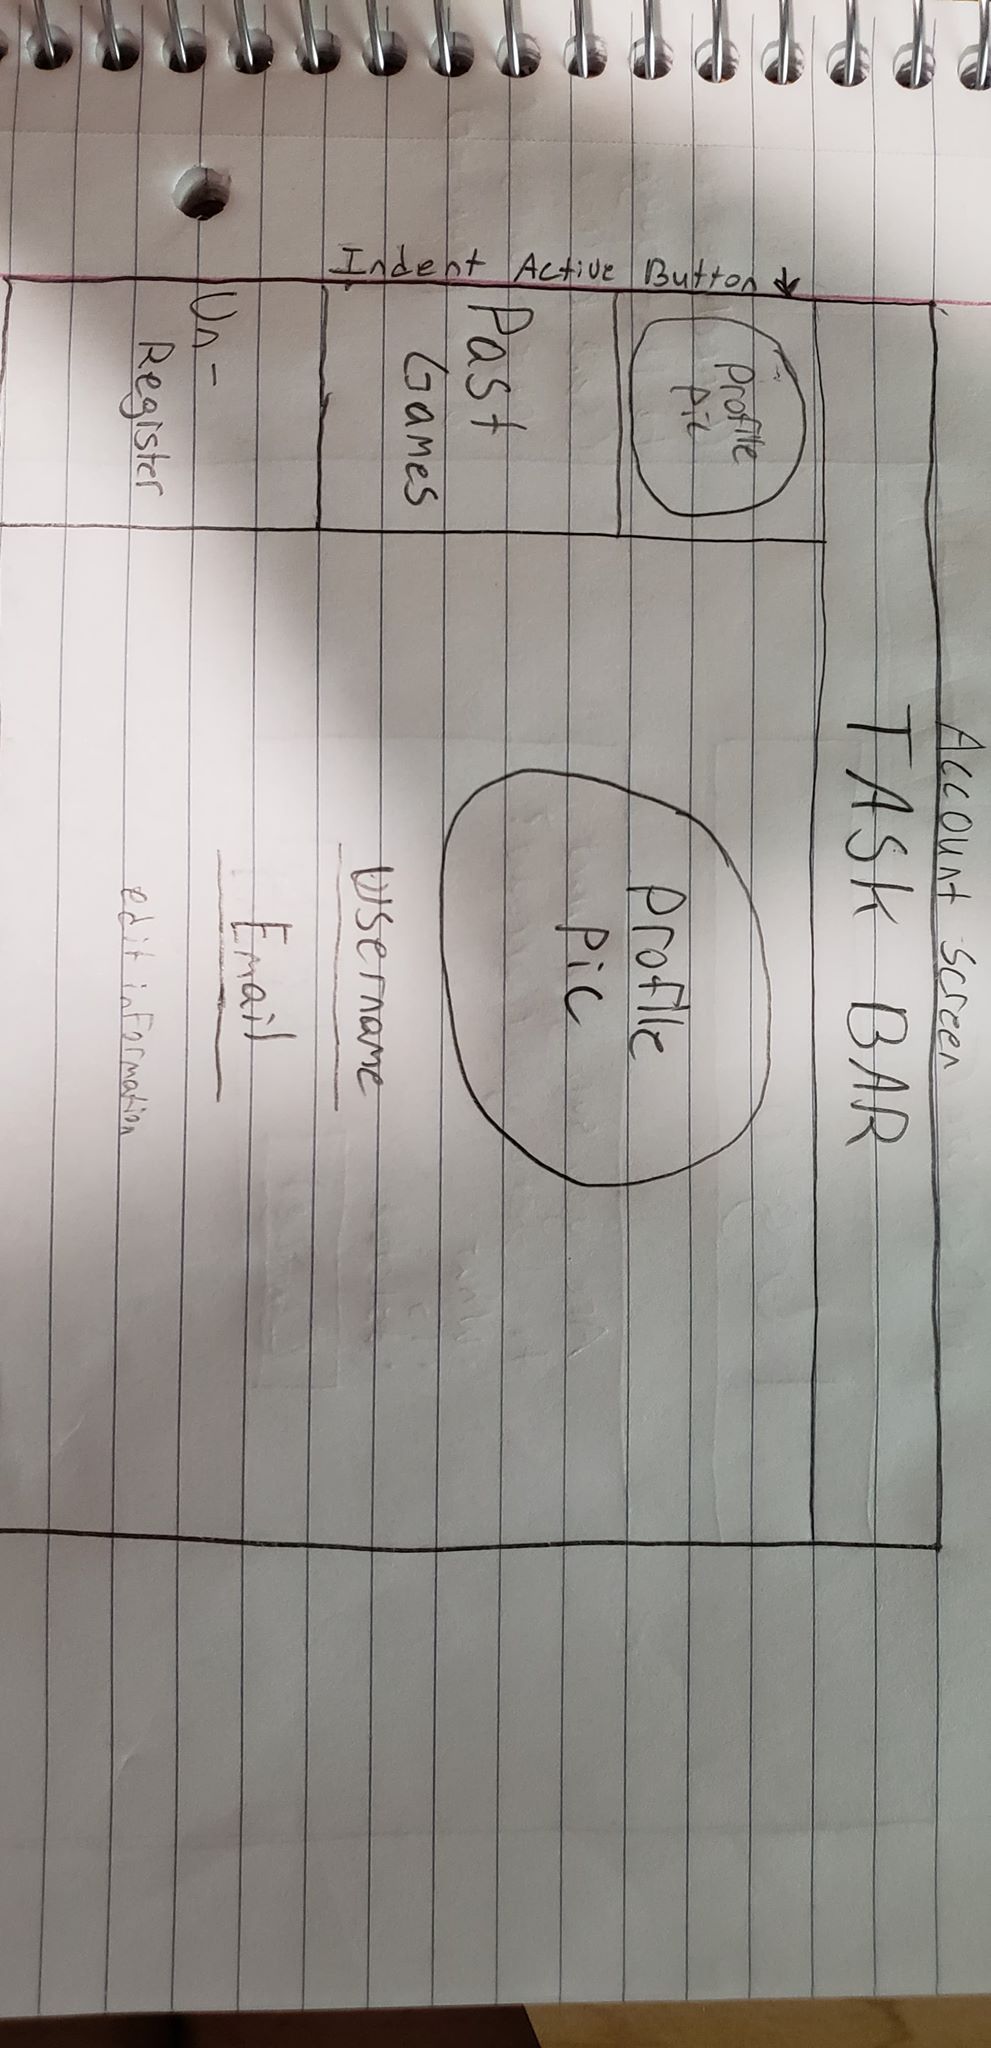 Account Screen
TASK BAR
Indent Active Button ↓
Profile
pic
Past
Games
Un-
Register
Profile
pic
Username
Email
edit information